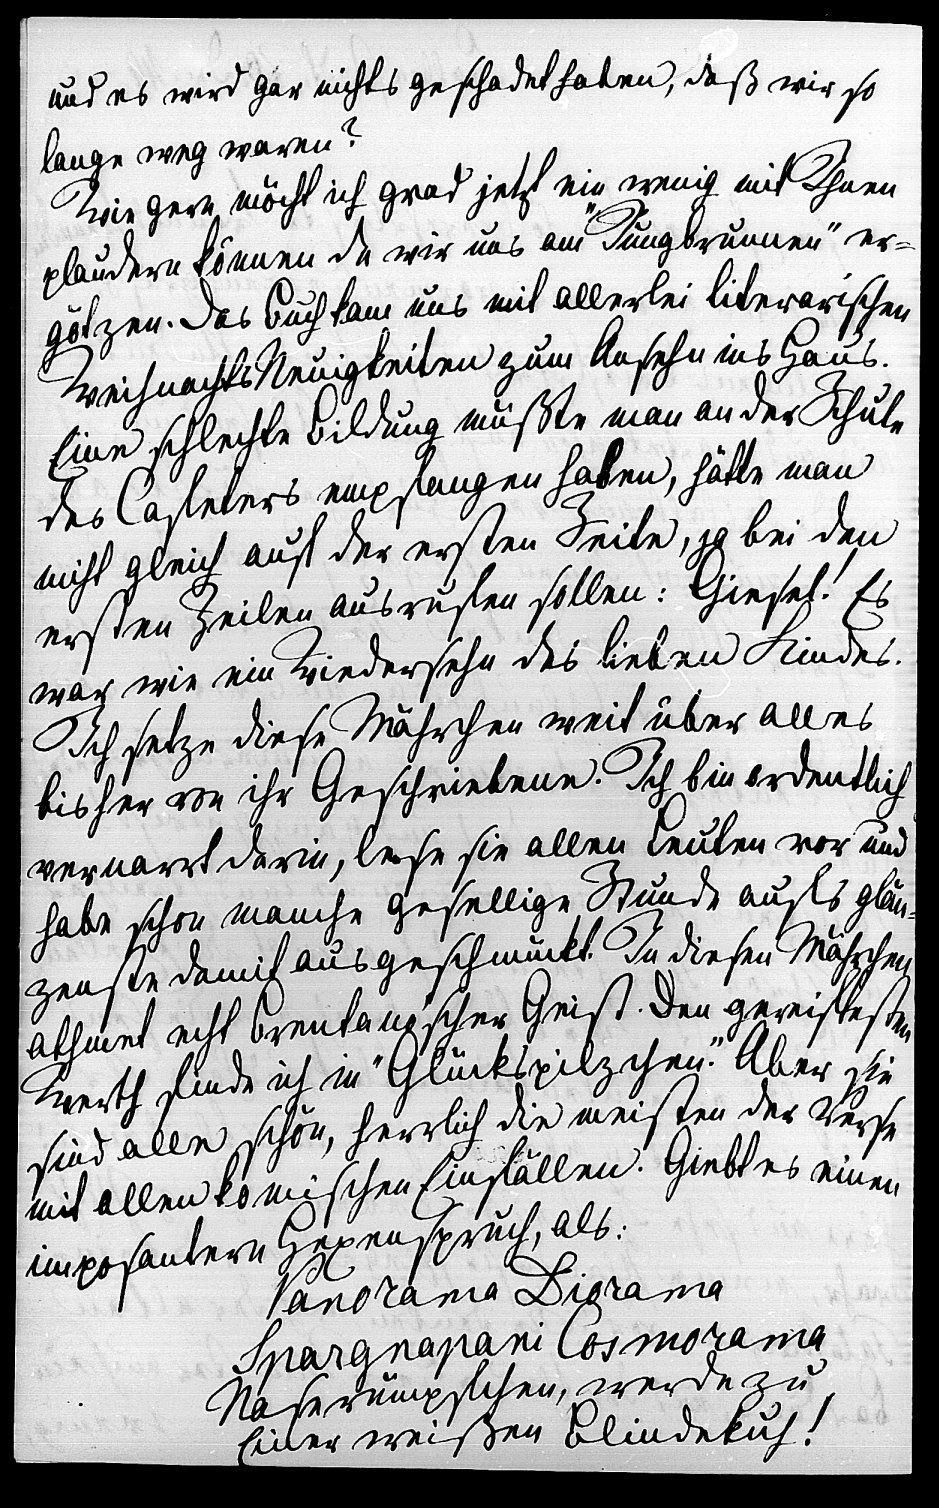 und es wird gar nichts geschadet haben, daß wir so
lange weg waren?
Wie gern möcht ich grad jetzt ein wenig mit Ihnen
plaudern können da wir uns am "Jungbrunnen" er=
götzen. Das Buch kam uns mit allerlei literarischen
Weihnachts Neuigkeiten zum Ansehn ins Haus.
Eine schlechte Bildung müßte man an der Schule
des Casleters empfangen haben, hätte man
nicht gleich auf der ersten Seite, ja bei den
ersten Zeilen ausrufen sollen: Gisel! Es
war wie ein Wiedersehn des lieben Kindes.
Ich setze diese Mährchen weit über alles
bisher von ihr Geschriebene. Ich bin ordentlich
vernarrt darin, lese sie allen Leuten vor und
habe schon manche gesellige Stunde aufs glän=
zenste damit ausgeschmückt. In diesen Mährchen
athmet echt Brentano'scher Geist. Den gereiftesten
Werth finde ich in "Glückspilzchen." Aber sie
sind alle schön, herrlich die meisten der Verse
mit allen komischen Einfällen. Giebt es einen
imposantern Hexenspruch, als:
Panorama Diorama
Spargnapani Cosmorama
Naserümpfchen, werde zu
Einer weißen Blindekuh!